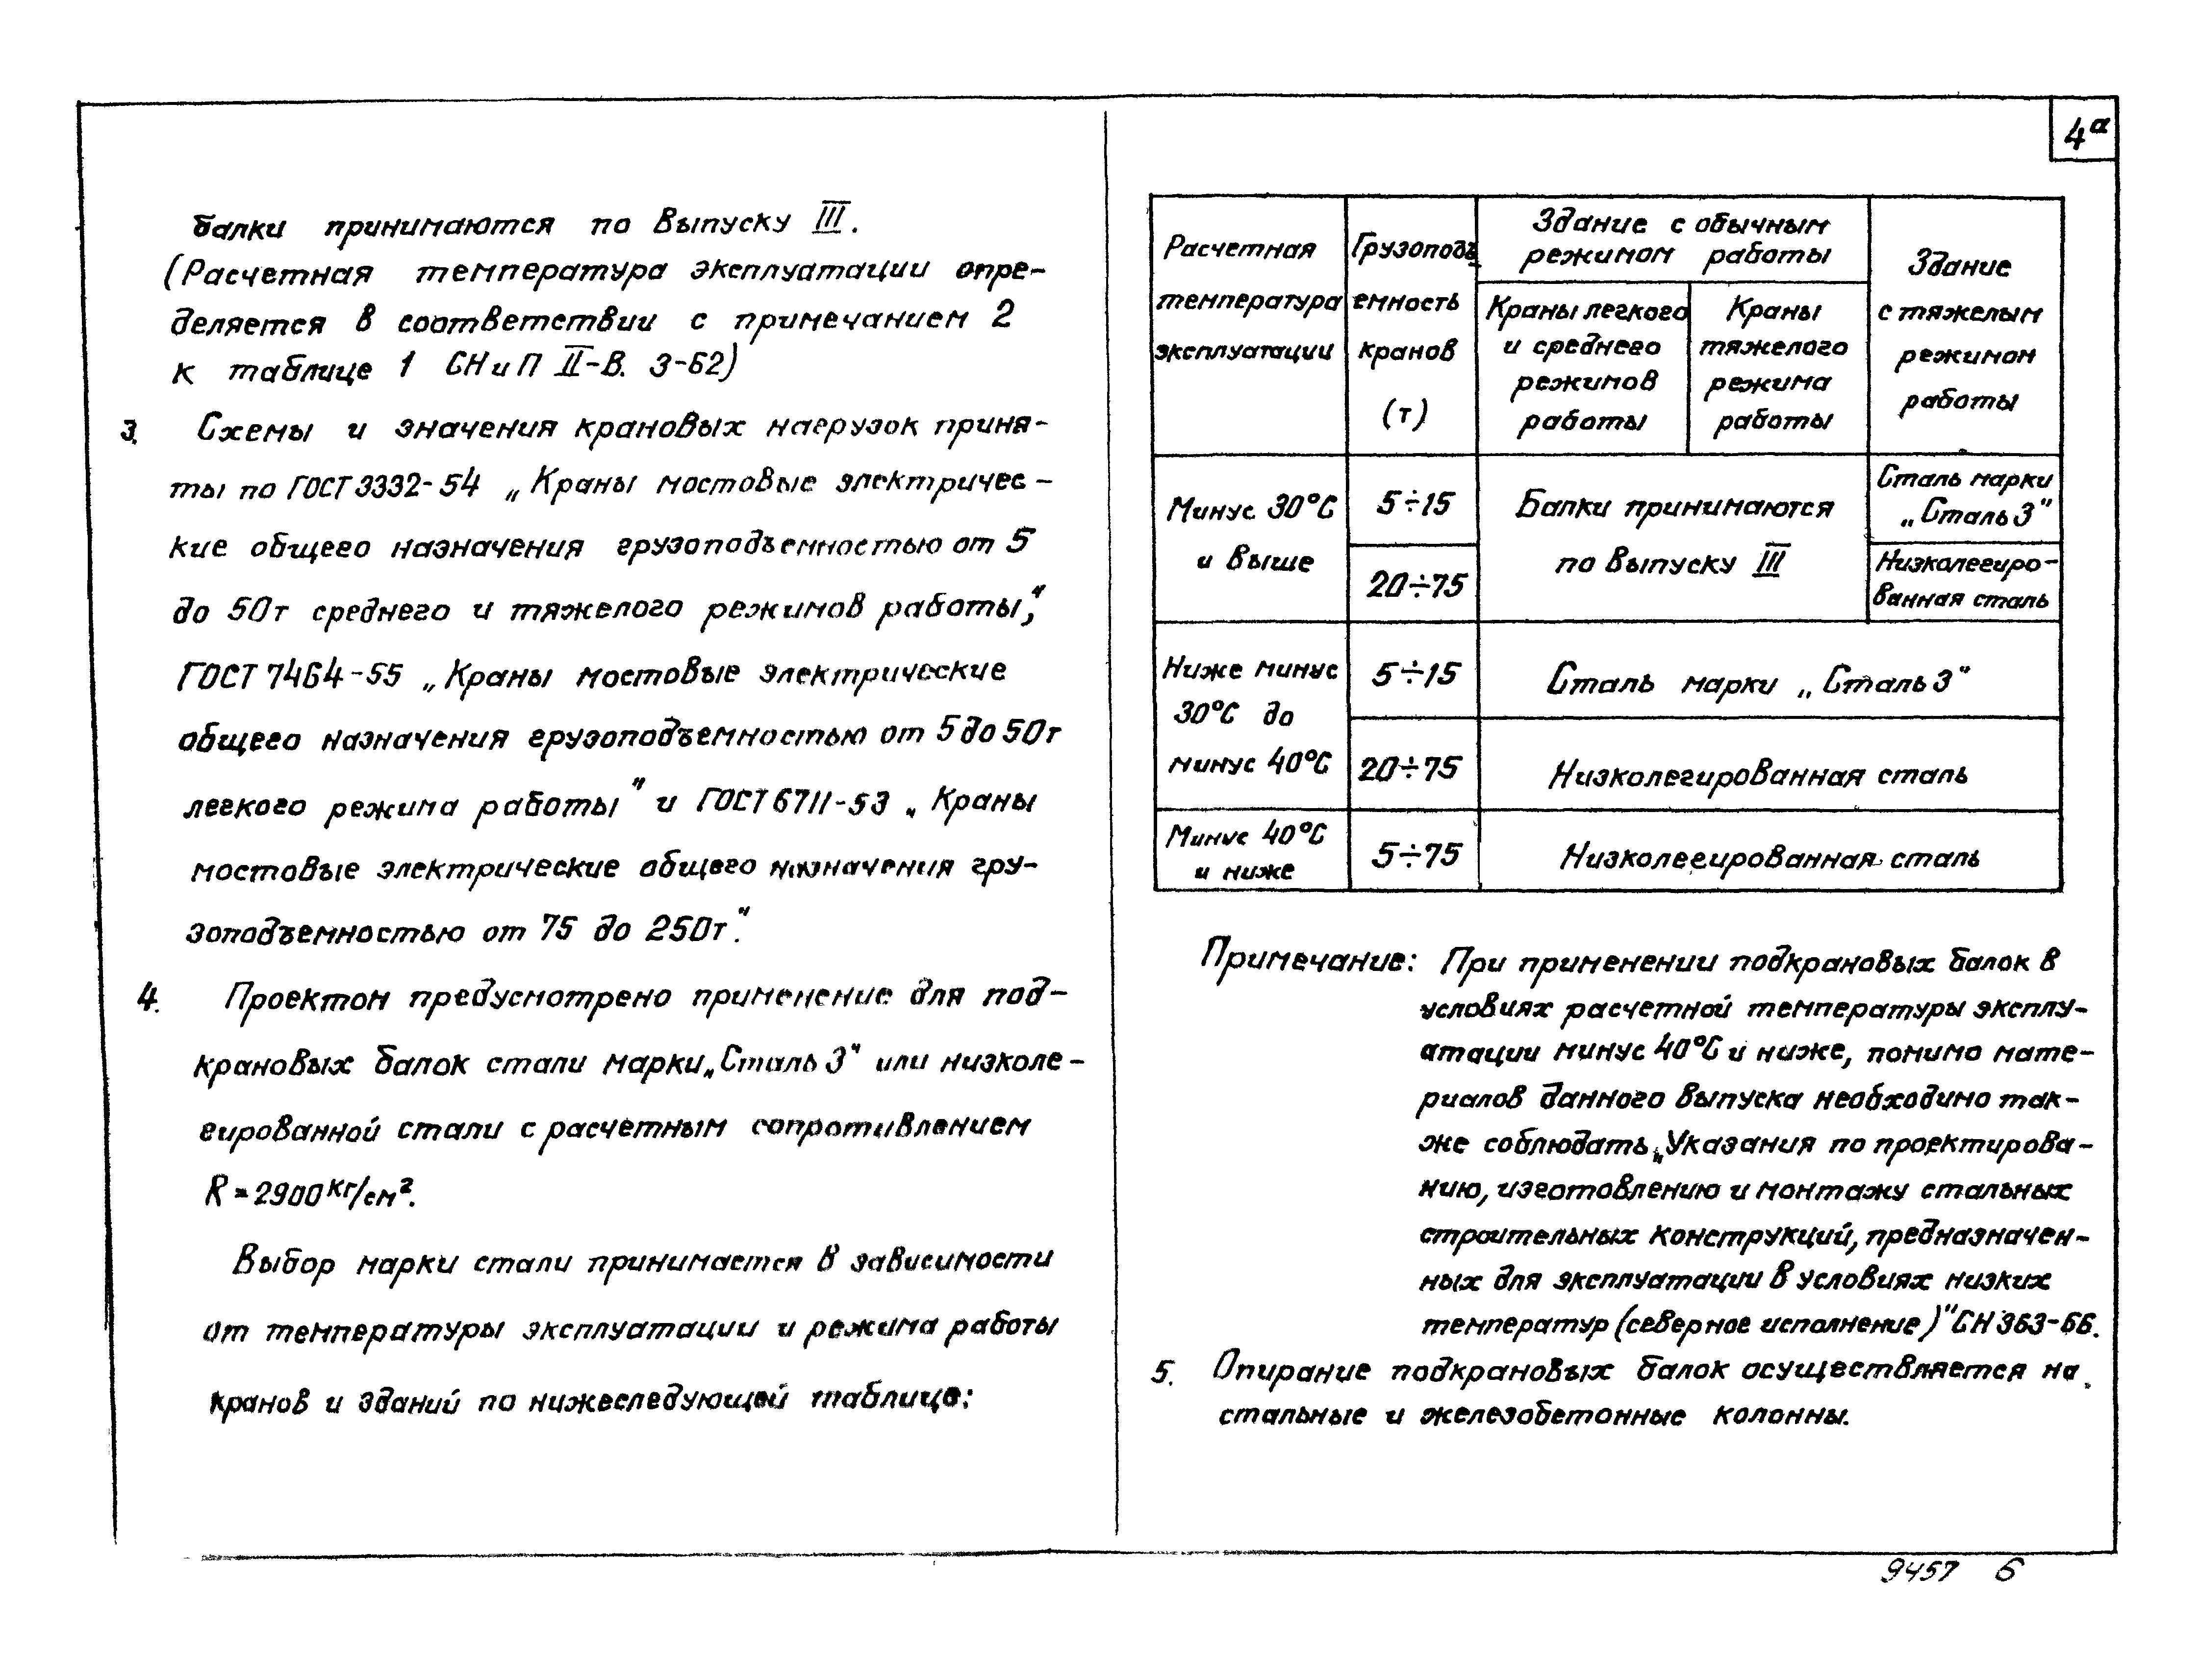 4а
балки принимаются по Выпуску III.
(Расчетная температура эксплуатации опре-
деляется в соответствии с примечанием 2
к таблице 1 СНиП II-В. 3-62)
3. Схемы и значения крановых нагрузок приня-
ты по ГОСТ 3332-54 „Краны мостовые электричес-
кие общего назначения грузоподъемностью от 5
до 50т среднего и тяжелого режимов работы",
ГОСТ 7464-55 „Краны мостовые электрические
общего назначения грузоподъемностью от 5 до 50т
легкого режима работы" и ГОСТ 6711-53 „Краны
мостовые электрические общего назначения гру-
зоподъемностью от 75 до 250т".
4. Проектом предусмотрено применение для под-
крановых балок стали марки „Сталь 3" или низколе-
гированной стали с расчетным сопротивлением
R=2900кг/см².
Выбор марки стали принимается в зависимости
от температуры эксплуатации и режима работы
кранов и зданий по нижеследующей таблице:
Расчетная
температура
эксплуатации
Грузоподъ
емность
кранов
(т)
Здание с обычным
режимом работы
Краны легкого
и среднего
режимов
работы
Краны
тяжелого
режима
работы
Здание
с тяжелым
режимом
работы
Минус 30°С
и выше
5÷15
20÷75
Балки принимаются
по Выпуску III
Сталь марки
„Сталь 3"
Низколегиро-
ванная сталь
Ниже минус
30°С до
минус 40°С
5÷15
Сталь марки „Сталь 3"
20÷75
Низколегированная сталь
Минус 40°С
и ниже
5÷75
Низколегированная сталь
Примечание: При применении подкрановых балок в
условиях расчетной температуры эксплу-
атации минус 40°С и ниже, помимо мате-
риалов данного выпуска необходимо так-
же соблюдать „Указания по проектирова-
нию, изготовлению и монтажу стальных
строительных конструкций, предназначен-
ных для эксплуатации в условиях низких
температур (северное исполнение)" СН 363-66.
5. Опирание подкрановых балок осуществляется на
стальные и железобетонные колонны.
9457 6